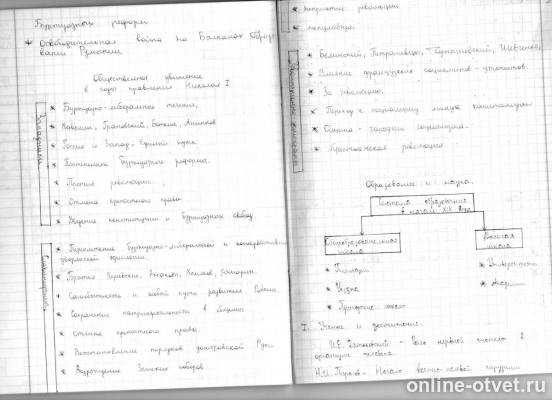 Буржуазных реформ
* Освободительная война на Балканах. Образо-
вание Румынии
Общественное движение
в годы правления Николая I
Западники
* Буржуазно-либеральное течение,
* Кавелин, Грановский, Боткин, Анненков
* Россия и Запад - Единый путь
* Постепенные буржуазные реформы.
* Против революции.
* Отмена крепостного права
* Введение конституции и буржуазных свобод.
Славянофилы
* Переплетение буржуазно-либеральной и консервативной
дворянской идеологии,
* Братья Киреевские, Аксаковы, Хомяков, Самарин.
* Самобытность и особый путь развития России
* Сохранение патриархальности в общине
* отмена крепостного права.
* Восстановление порядков допетровской Руси
* Возрождение Земских соборов.
* неприятие революции
*
* Белинский, Петрашевцы, Чернышевский, Шевченко,
* Влияние французских социалистов-утопистов.
* За революцию.
* Переход к социализму минуя капитализм
* Община - зародыш социализма.
* Крестьянская революция
Образование и наука.
Система образования
в начале XIX века
Общеобразовательная
школа
Высшая
школа
* Гимназии
* Уездные
* Приходские школы
* Университеты
* Академии
I. Ученые и достижения.
- Роль нервной системы в
организме человека.
Н.И. Пирогов - Начало военно-полевой хирургии
online-otvet.ru